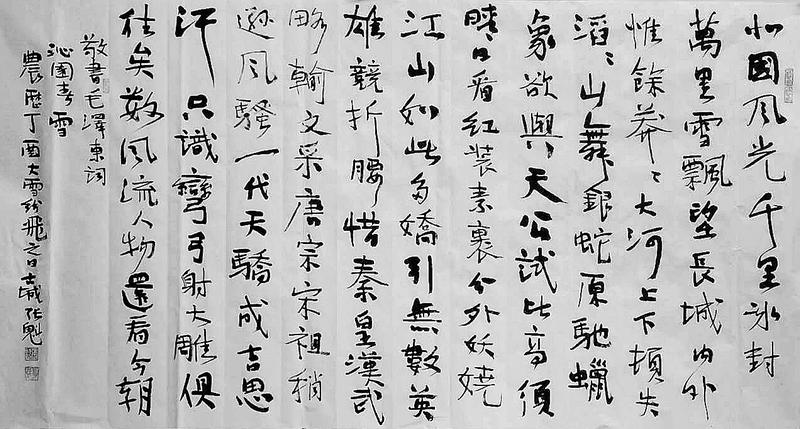 北國风光千里冰封
萬里雪飄望長城內外
惟餘莽〻大河上下頓失
滔〻山舞銀蛇原馳蠟
象欲與天公試比高須
晴日看紅装素裹分外妖娆
江山如此多嬌引無數英
雄競折腰惜秦皇漢武
略輸文采唐宗宋祖稍
遜风騷一代天驕成吉思
汗只識彎弓射大雕俱
往矣数风流人物還看今朝
敬書毛澤東詞
沁園春雪
農曆丁酉大雪纷飛之日